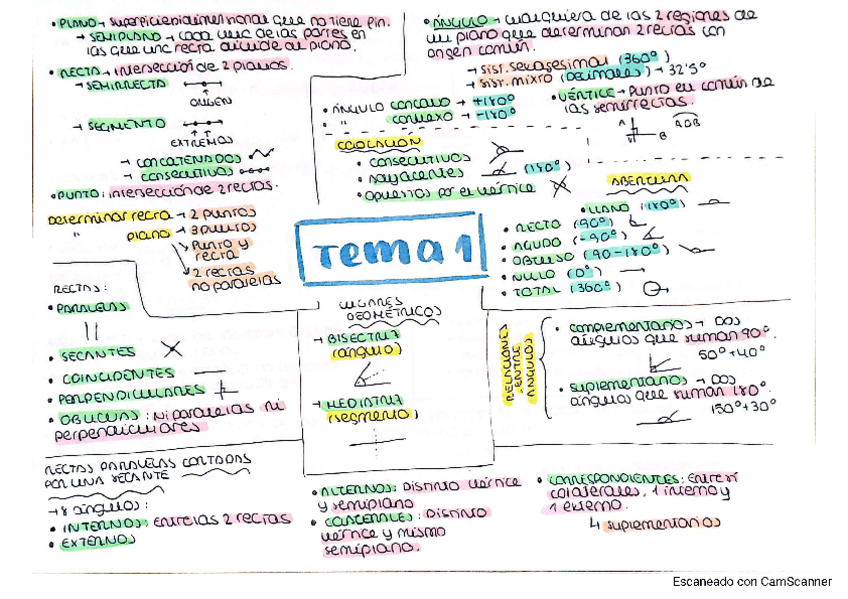 • PLANO → superficie bidimensional que no tiene fin.
→ SEMIPLANO → cada una de las partes en
las que una recta divide al plano.
• RECTA → intersección de 2 planos.
→ SEMIRRECTA
ORIGEN
→ SEGMENTO
EXTREMOS
→ CONCATENADOS
→ consecutivos
• PUNTO: intersección de 2 rectas.
Determinar recta → 2 puntos
" plano → 3 puntos
Punto y
recta
2 rectas
no paralelas
• ÁNGULO → cualquiera de las 2 regiones de
un plano que determinan 2 rectas con
origen común.
→ sist. sexagesimal (360º)
→ sist. mixto (decimales) → 32'5º
• ÁNGULO concavo → +180º
• " convexo → -180º
• VÉRTICE → Punto en común de
las semirrectas.
A
B
AOB
COLOCACIÓN
• consecutivos
• adyacentes (180º)
• opuestos por el vértice
ABERTURA
• LLANO (180º)
• RECTO (90º)
• AGUDO (-90º)
• OBTUSO (90-180º)
• NULO (0º)
• TOTAL (360º)
Tema 1
RECTAS:
• PARALELAS
• SECANTES
• COINCIDENTES
• PERPENDICULARES
• OBLICUAS: Ni paralelas ni
perpendiculares
LUGARES
GEOMÉTRICOS
→ BISECTRIZ
(ángulo)
→ MEDIATRIZ
(segmento)
RELACIONES
ENTRE
ÁNGULOS
• complementarios → DOS
ángulos que suman 90º.
50º+40º
• suplementarios → DOS
ángulos que suman 180º.
150º+30º
RECTAS PARALELAS CORTADAS
POR UNA SECANTE
→ 8 ángulos:
• INTERNOS: Entre las 2 rectas
• EXTERNOS
• ALTERNOS: Distinto vértice
y semiplano
• Distinto
vértice y mismo
semiplano.
• CORRESPONDIENTES: Entre sí
colaterales, 1 interno y
1 externo.
4 suplementarios
Escaneado con CamScanner